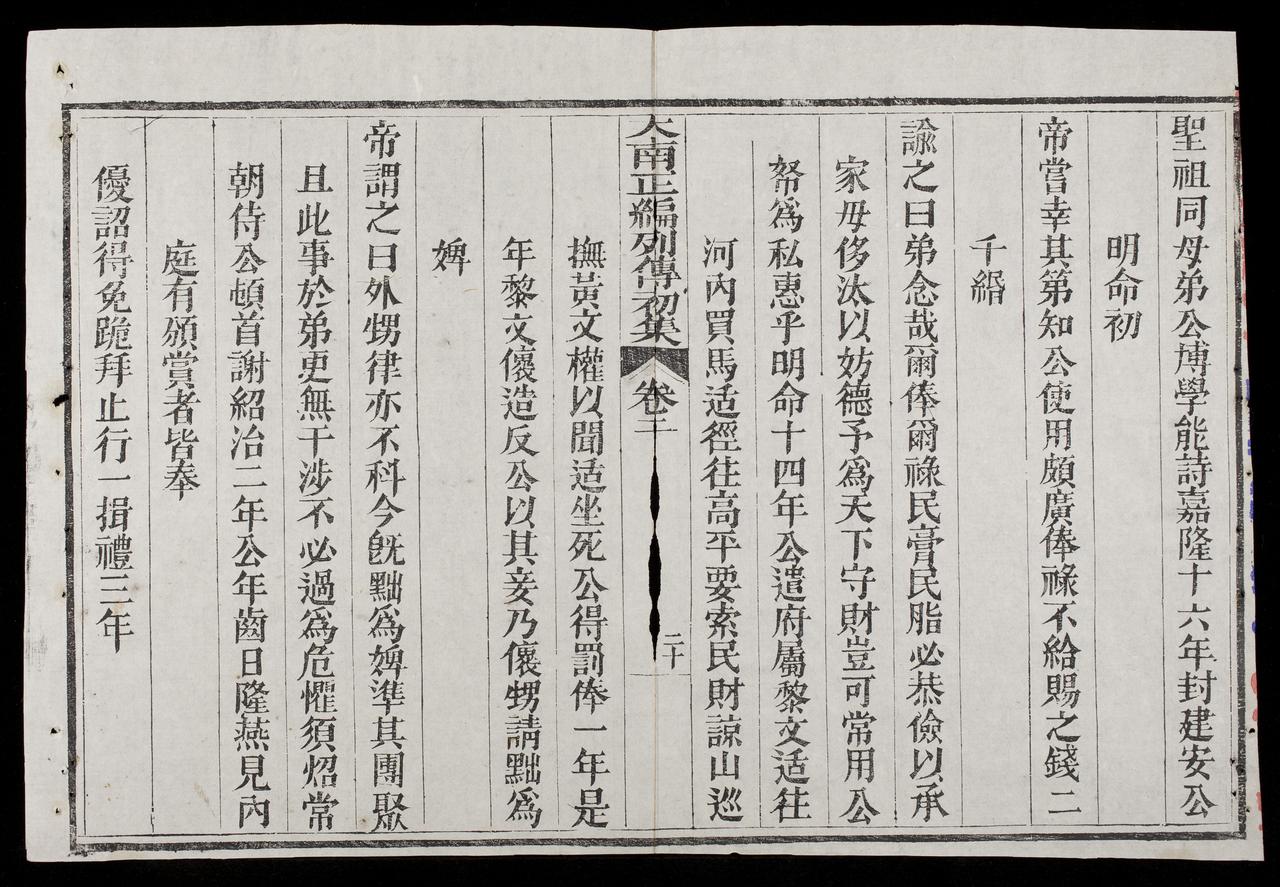 聖祖同母弟公博學能詩嘉隆十六年封建安公
明命初
帝嘗幸其第知公使用頗廣俸祿不給賜之錢二
千緡
諭之曰弟念哉爾俸爾祿民膏民脂必恭儉以承
家毋侈汰以妨德予爲天下守財豈可常用公
帑爲私惠乎明命十四年公遣府屬黎文适往
河內買馬适徑往高平要索民財諒山巡
大南正編列傳初集 卷二 二十
撫黃文權以聞适坐死公得罰俸一年是
年黎文儴造反公以其妾乃儴甥請黜爲
婢
帝謂之曰外甥律亦不科今既黜爲婢準其團聚
且此事於弟更無干涉不必過爲危懼須炤常
朝侍公頓首謝紹治二年公年齒日隆燕見內
庭有頒賞者皆奉
優詔得免跪拜止行一揖禮三年